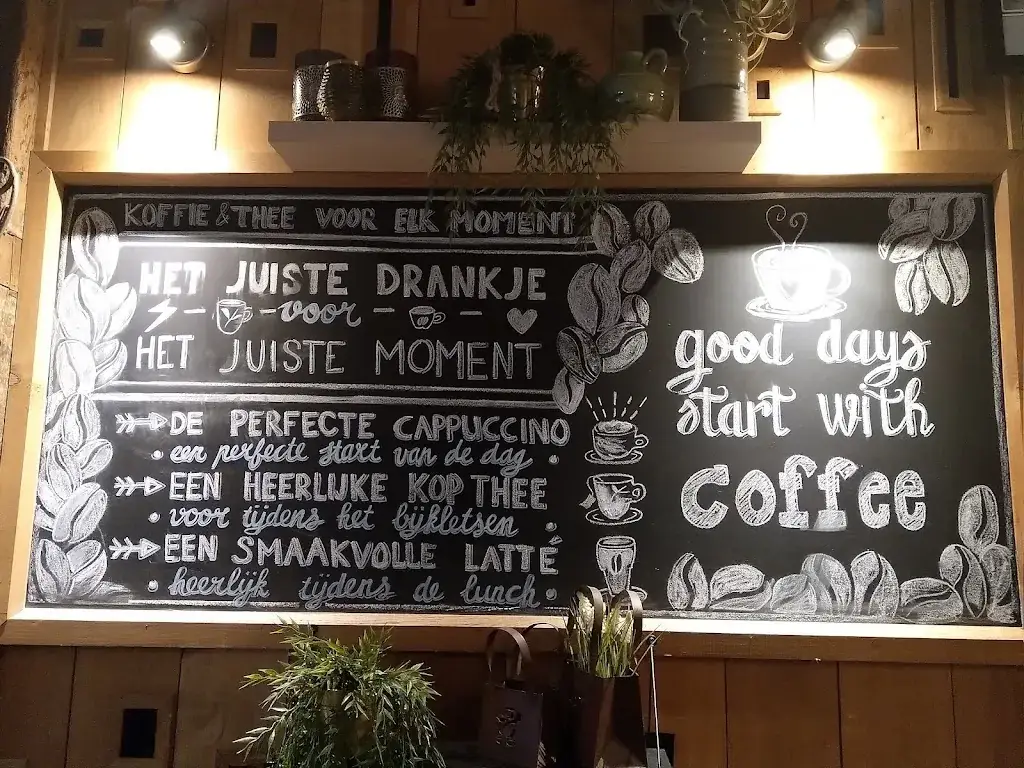 KOFFIE & THEE VOOR ELK MOMENT
HET JUISTE DRANKJE
voor
HET JUISTE MOMENT
DE PERFECTE CAPPUCCINO
een perfecte start van de dag
EEN HEERLIJKE KOP THEE
voor tijdens het bijkletsen
EEN SMAAKVOLLE LATTÉ
heerlijk tijdens de lunch
good days
start with
coffee